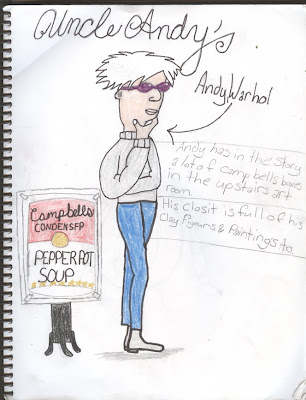 Uncle Andy's
Andy Warhol
Andy has in the story
a lot of campbells boxes
in the upstairs art
room.
His closit is full of his
Clay Figuars & Paintings to
Campbells
CONDENSED
PEPPER POT
SOUP